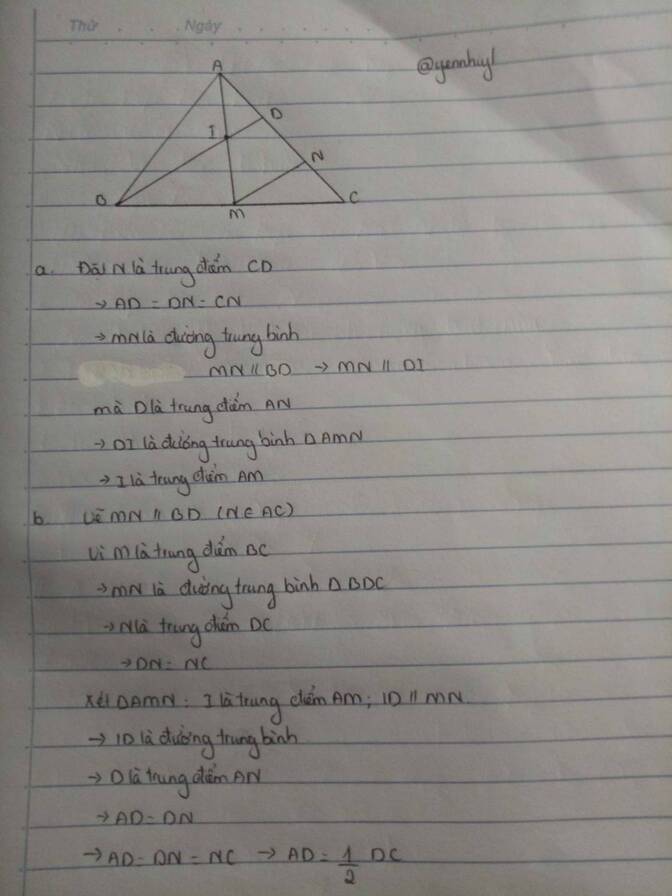 Thứ Ngày
@yennhiy1
A
D
I
N
B
M
C
a. Đặt N là trung điểm CD
→ AD = DN = CN
→ MN là đường trung bình
MN // BD → MN // DI
mà D là trung điểm AN
→ DI là đường trung bình Δ AMN
→ I là trung điểm AM
b. Vẽ MN // BD (N ∈ AC)
Vì M là trung điểm BC
→ MN là đường trung bình Δ BDC
→ N là trung điểm DC
→ DN = NC
Xét ΔAMN: I là trung điểm AM; ID // MN
→ ID là đường trung bình
→ D là trung điểm AN
→ AD = DN
→ AD = DN = NC → AD = 1/2 DC